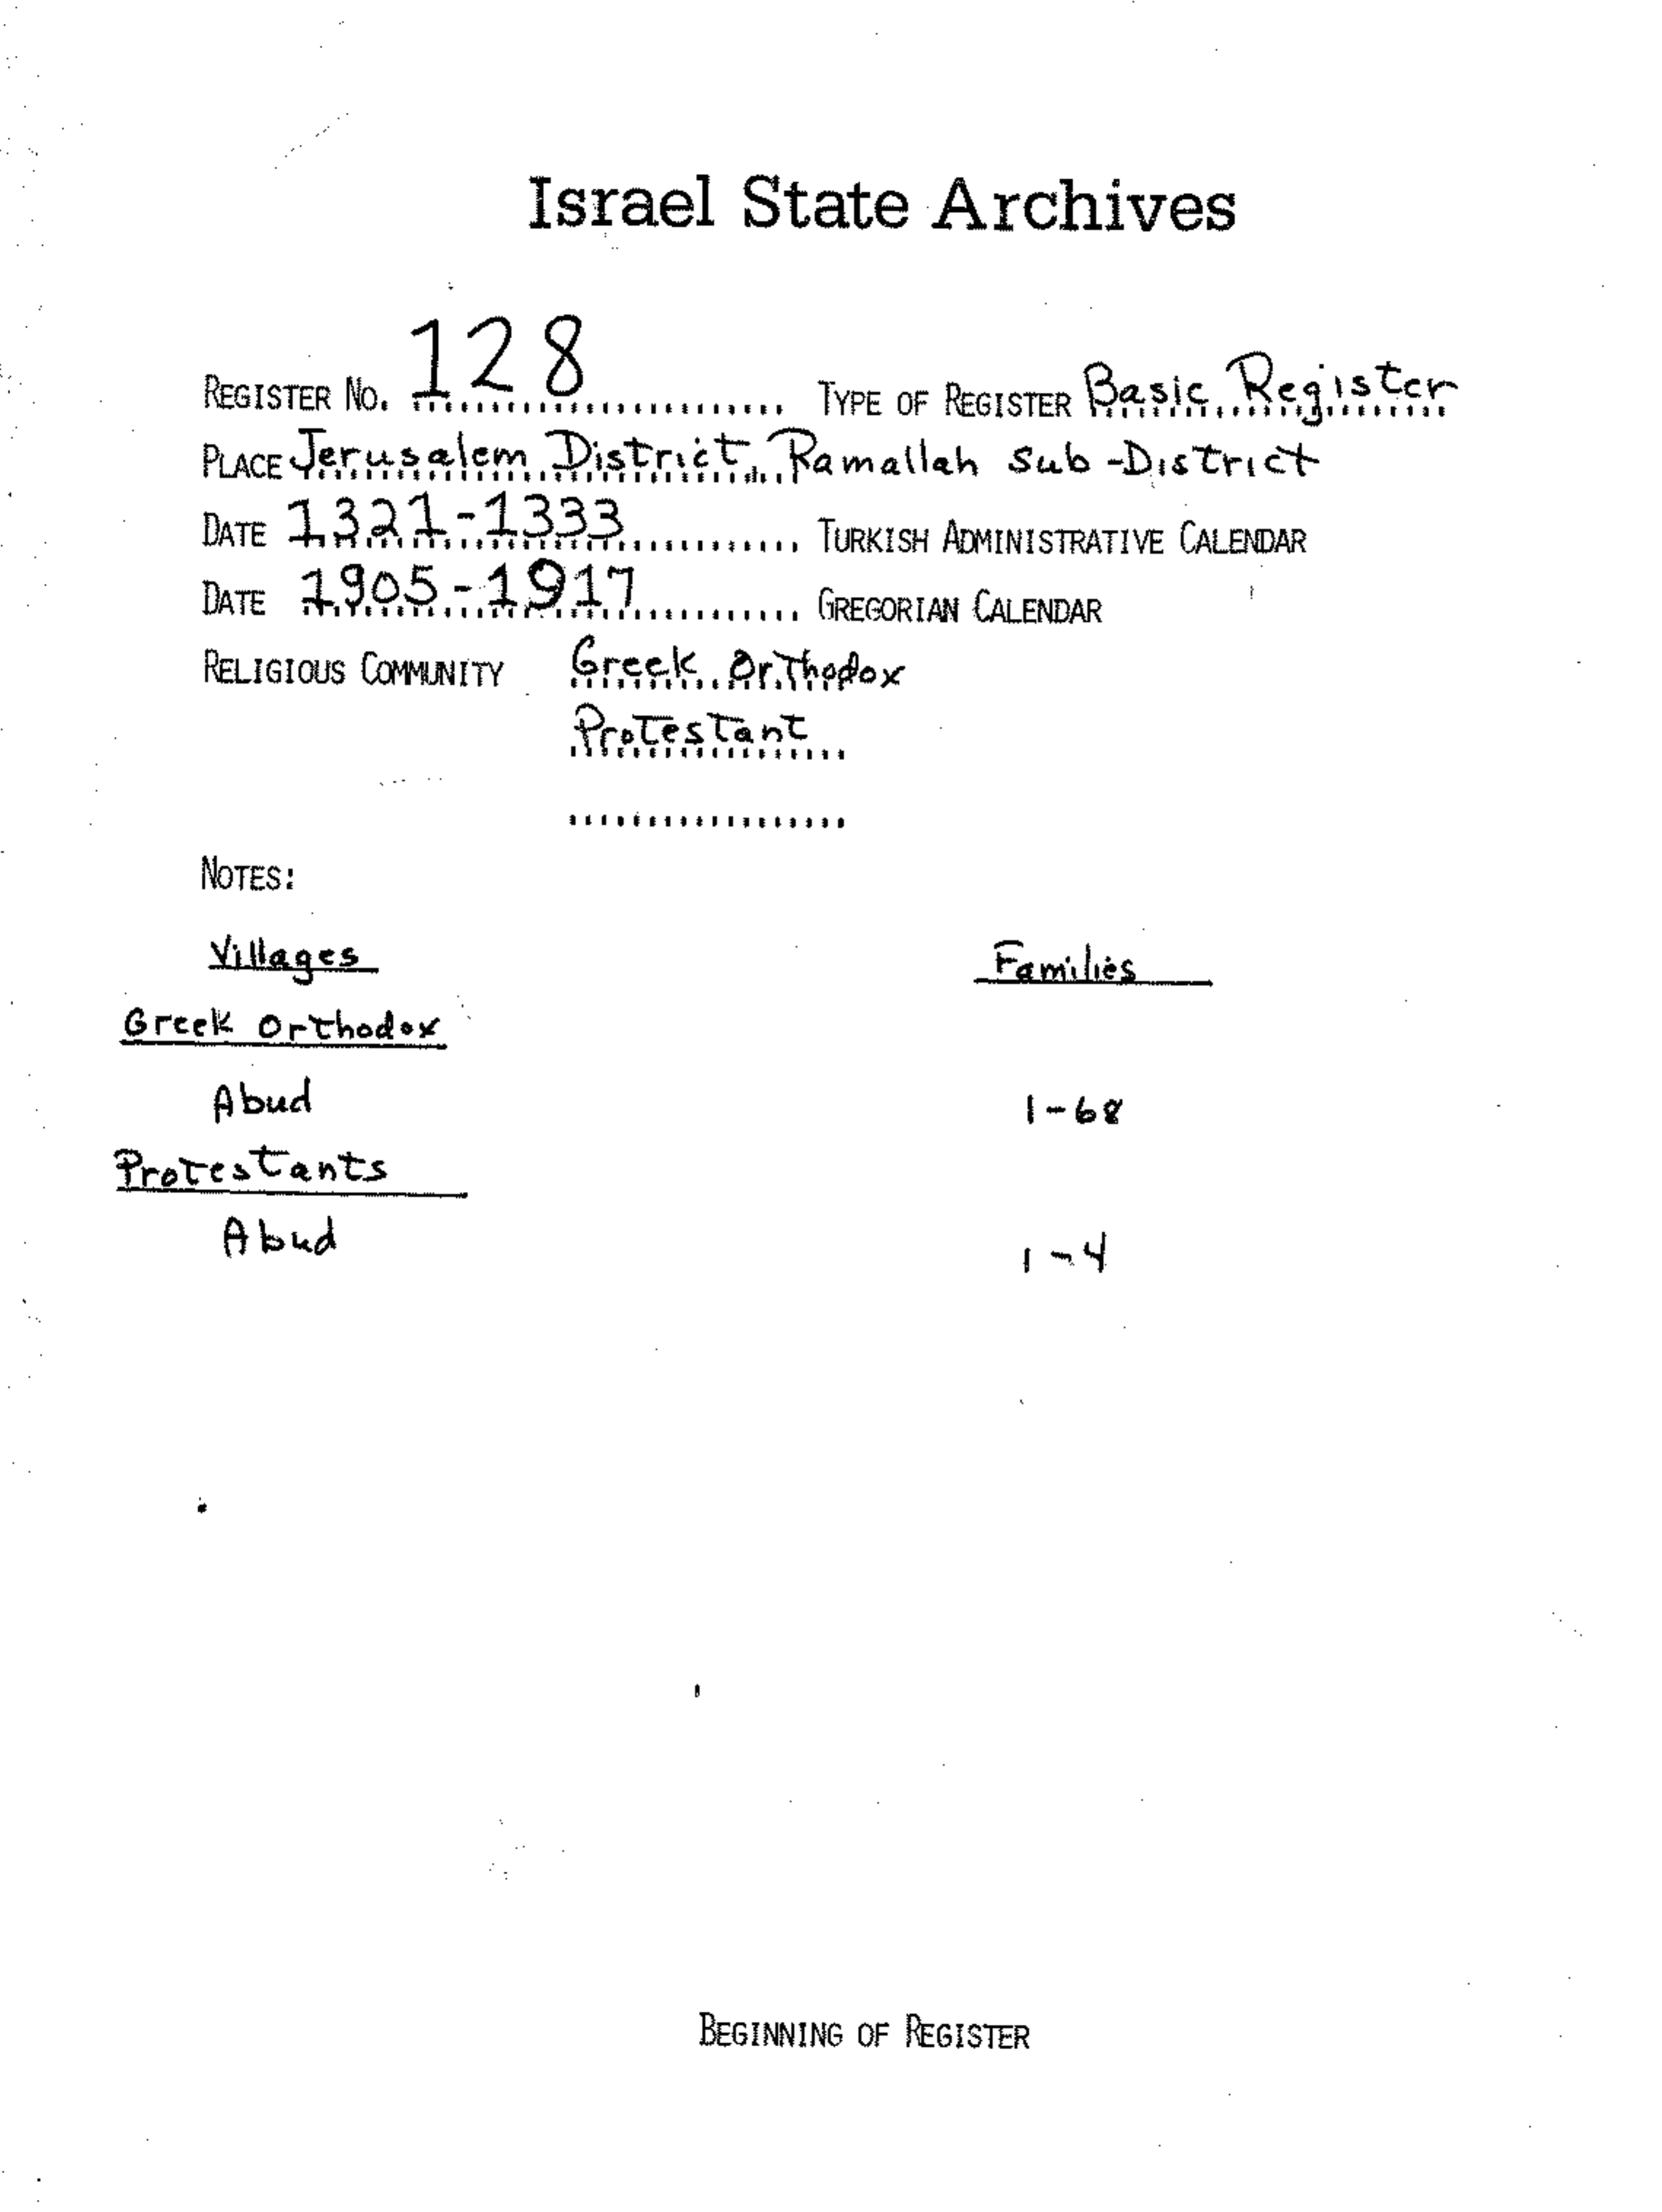 Israel State Archives
REGISTER NO. 128 TYPE OF REGISTER Basic Register
PLACE Jerusalem District, Ramallah Sub-District
DATE 1321-1333 TURKISH ADMINISTRATIVE CALENDAR
DATE 1905-1917 GREGORIAN CALENDAR
RELIGIOUS COMMUNITY Greek Orthodox
Protestant
NOTES:
Villages Families
Greek Orthodox
Abud 1-68
Protestants
Abud 1-4
BEGINNING OF REGISTER